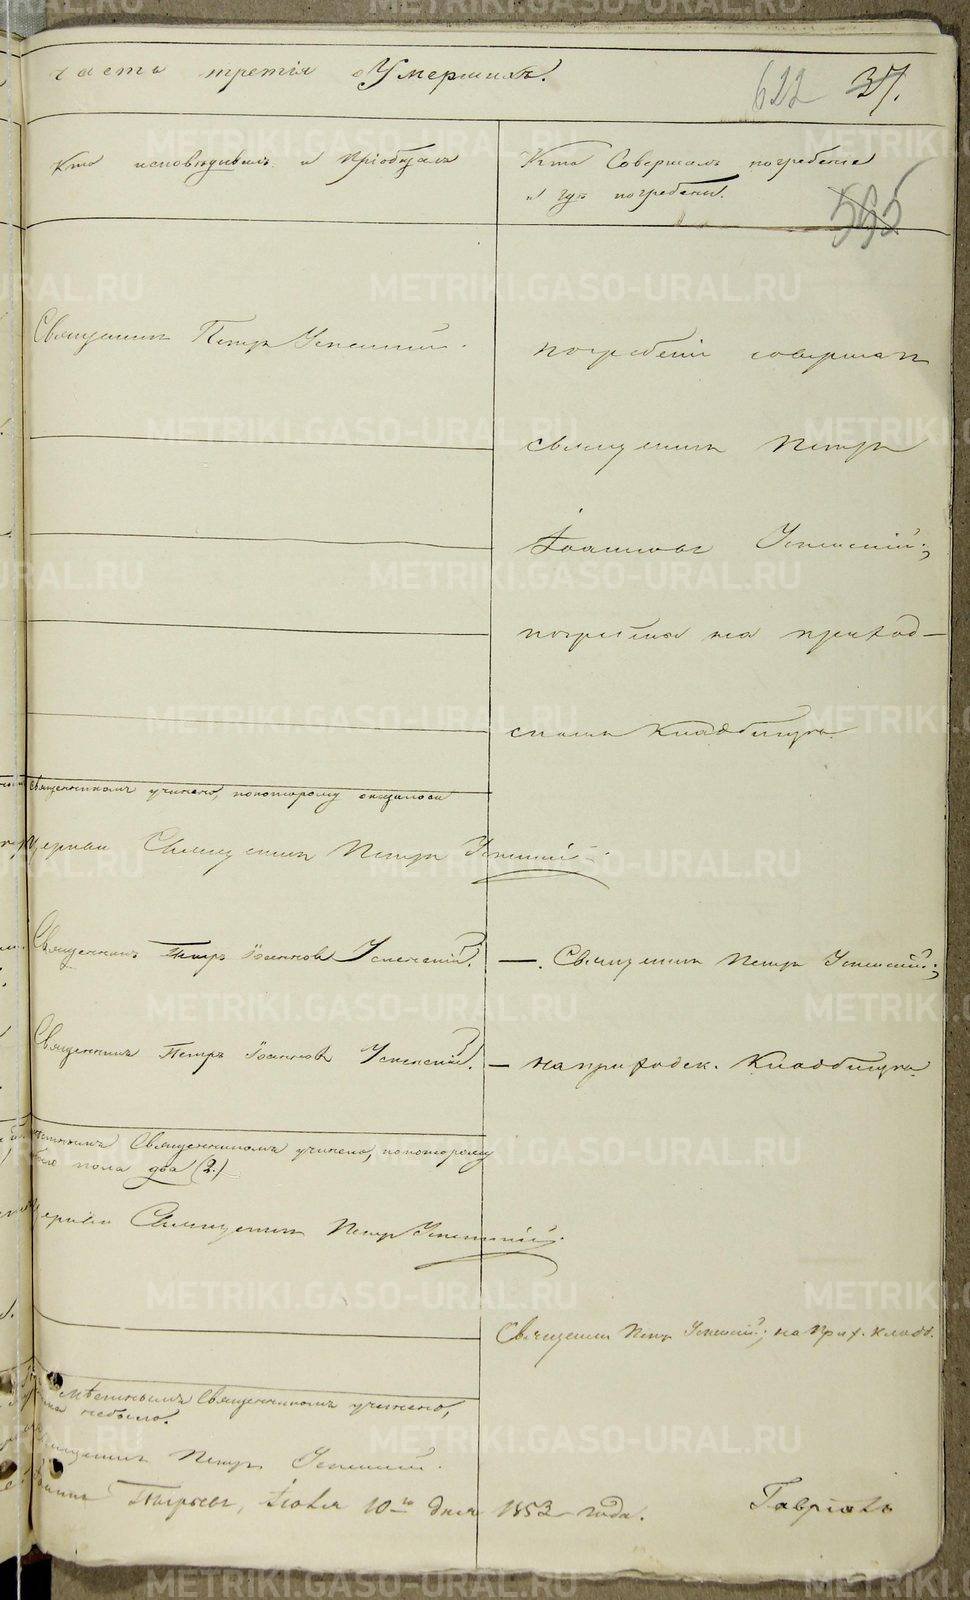 часть третія о Умершихъ.
622 37.
Кто исповѣдывалъ и пріобщалъ
Кто Совершалъ погребеніе
и гдѣ погребены.
595
Священникъ Петръ Успенскій.
погребеніе совершалъ
священникъ Петръ
Іоанновъ Успенскій;
погребены на приход-
скомъ Кладбищѣ.
священникомъ учинено, по которому оказалось
церкви Священникъ Петръ Успенскій
Священникъ Петръ Іоанновъ Успенскій.
—. Священникъ Петръ Успенскій;
Священникъ Петръ Іоанновъ Успенскій.
— на приходск. Кладбищѣ.
Священникомъ учинено, по которому
пола два (2.)
церкви Священникъ Петръ Успенскій.
Священникъ Петръ Успенскій; на прих. кладб.
мѣстнымъ Священникомъ учинено,
небыло.
Священникъ Петръ Успенскій.
10го дня 1853 года.
Гавріилъ
METRIKI.GASO-URAL.RU